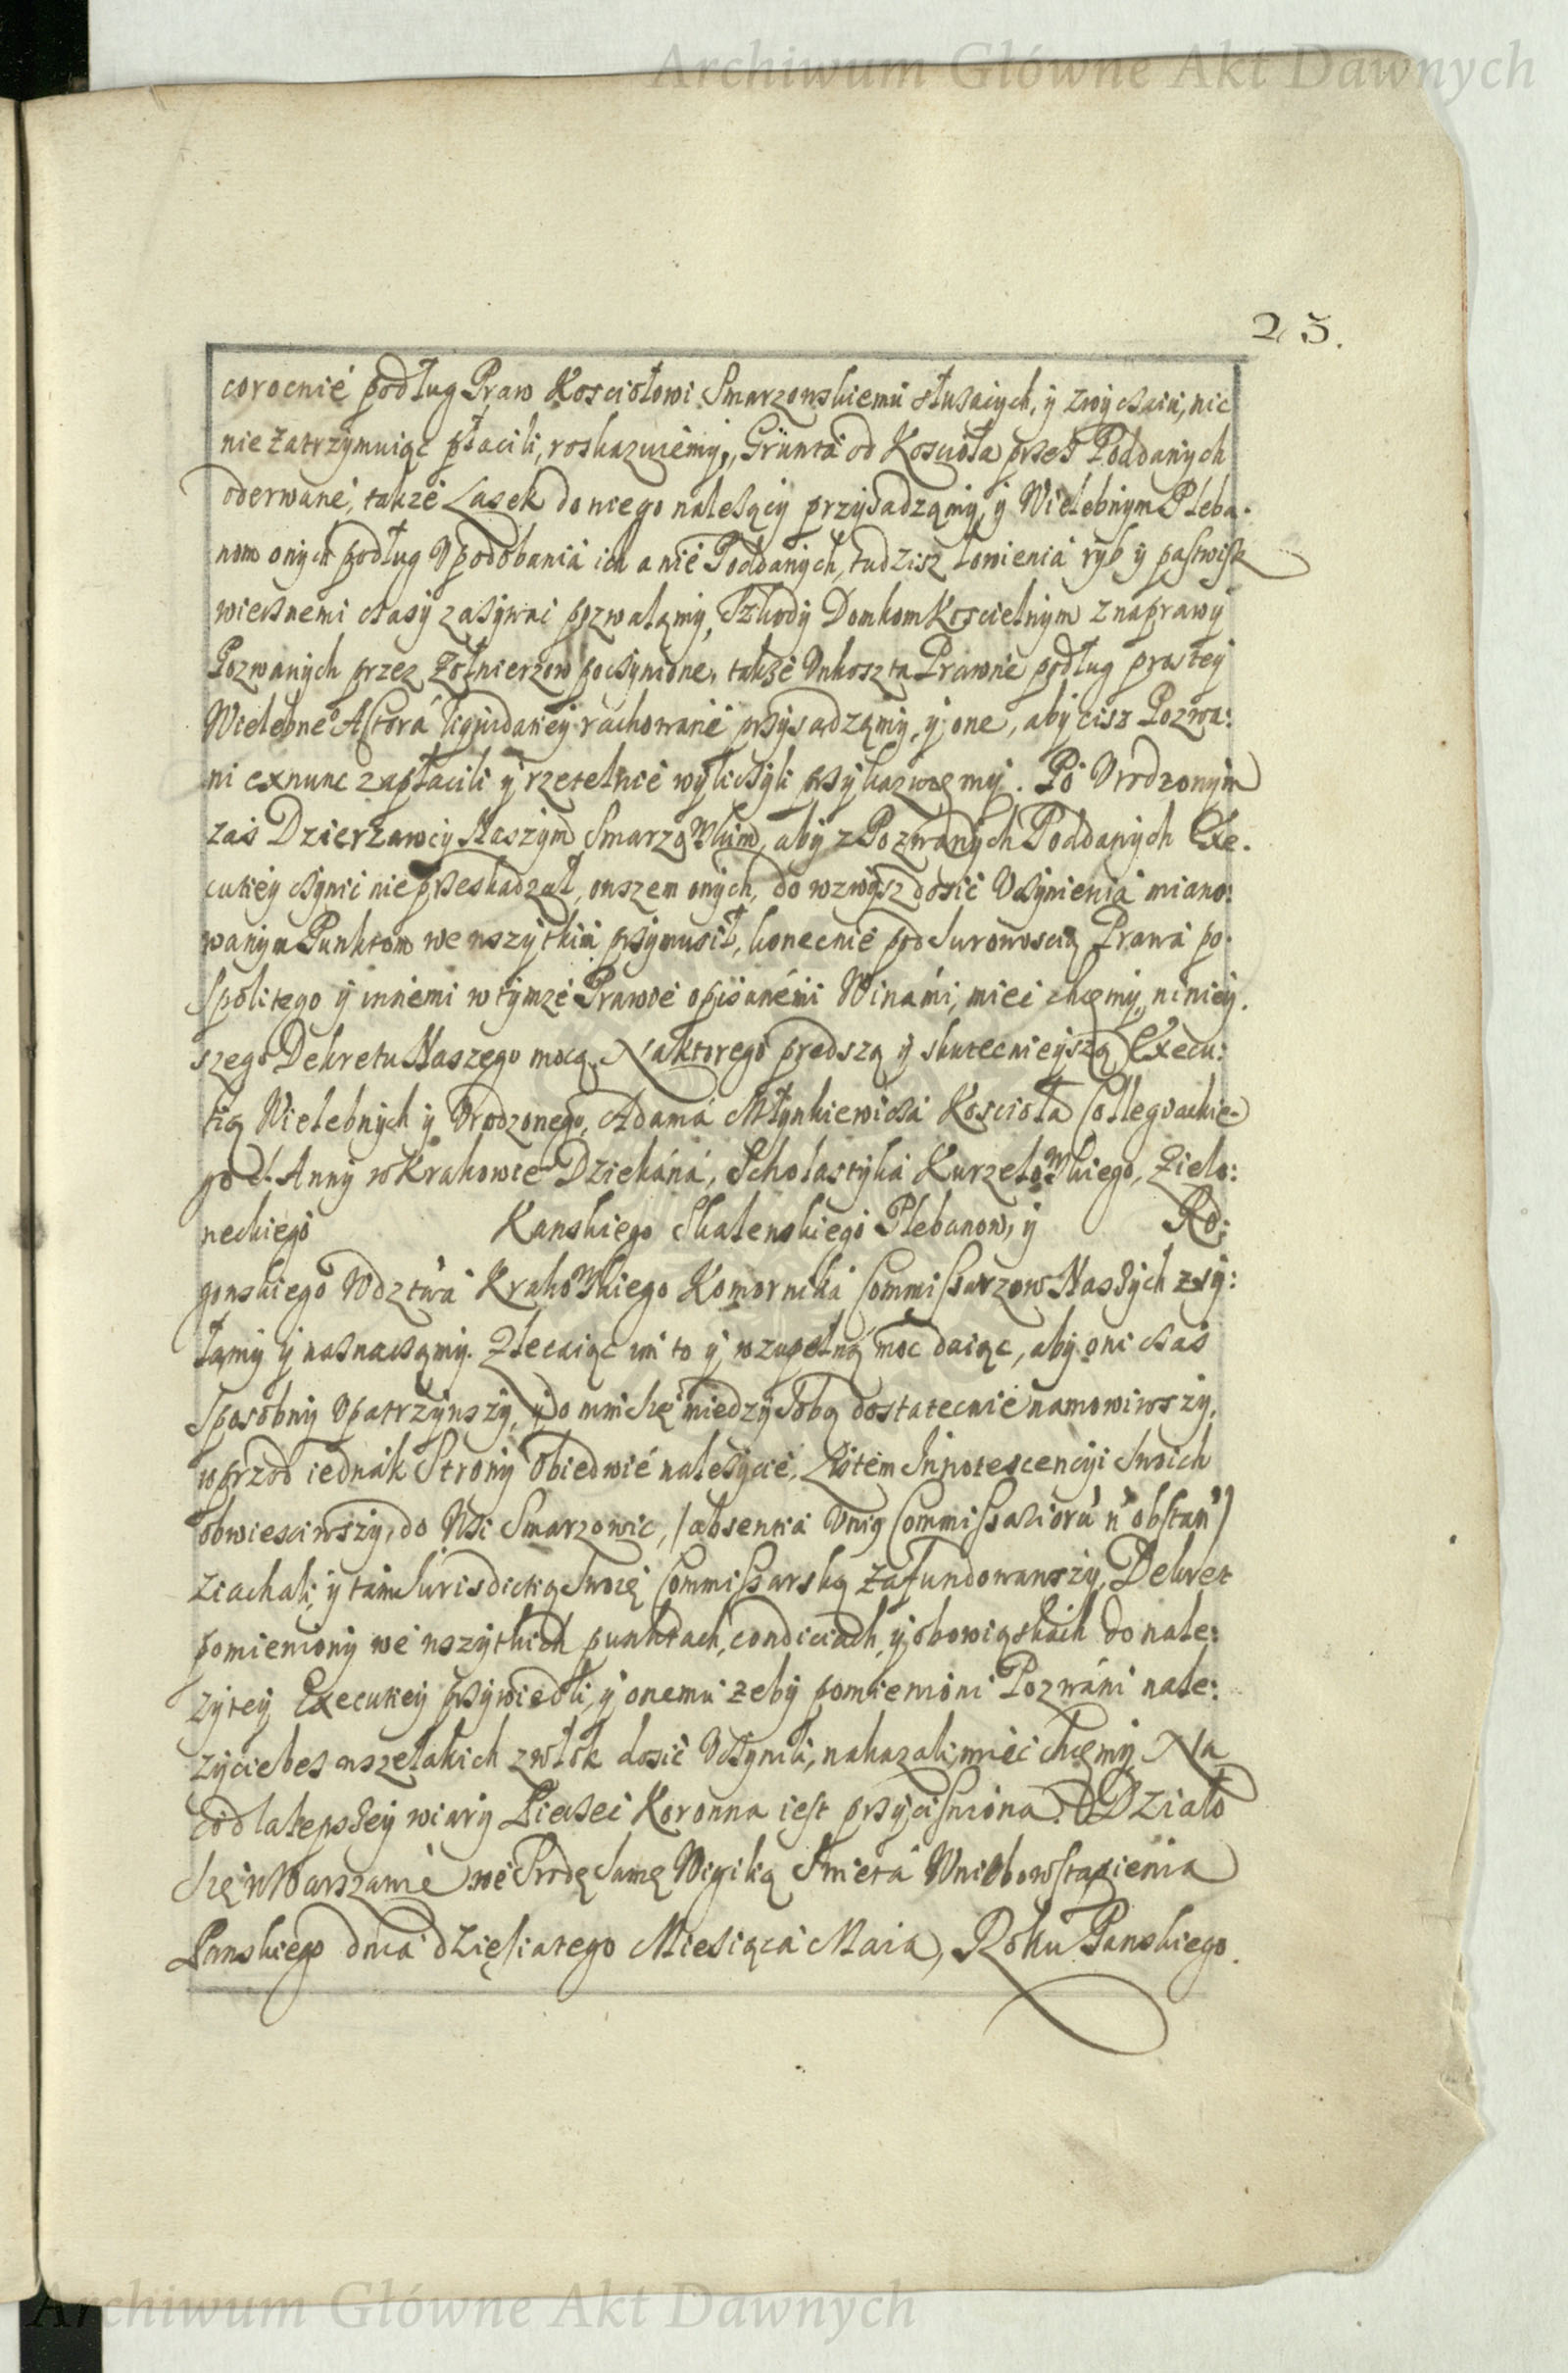 Archiwum Główne Akt Dawnych
23.
corocnié podług Praw Kosciołowi Smarzowskiemu słusących, ÿ zwÿcsaiu, nic
nie zatrzÿmuiąc płacili, roskazuiemÿ, Grunta od Koscioła przes Poddanÿch
oderwané, takze Lasek do niego nalesącÿ przÿsadzamÿ, ÿ Wielebnÿm Pleba-
nom onÿch podług Upodobania ich a nié Poddanÿch, tudzisz łowienia rÿb ÿ pastwisk
wiecsnemi csasÿ zasÿwać pozwalamÿ, Szkodÿ Domkom Koscielnÿm z naprawÿ
Pozwanÿch przez Zołnierzow pocsÿnione, takze Unkoszta Prawne podług prostej
Wielebneº Actora liquidacieÿ rachowanié przÿsadzamÿ, ÿ one, abÿ cisz Pozwa:
ni exnunc zapłacili ÿ rzetelnié wÿlicsÿli przÿkazuięmÿ. Po Urodzonÿm
zas Dzierzawcÿ Naszÿm Smarzowskim, abÿ z Pozwanÿch Poddanÿch Exe-
cutieÿ csÿnić nie przeskadzał, owszem onÿch, do wzwÿsz dosić Ucsÿnienia miano:
wanÿm Punktom we wszÿtkim przÿmusił, konecnié pod surowoscią Prawa po-
spolitego ÿ innemi w tÿmzé Prawie opisanémi Winami, mieć chcemÿ, ninieÿ-
szego Dekretu Naszego mocą. Na ktorego prędszą ÿ skutecnieÿszą Execu:
tią Wielebnÿch ÿ Urodzonego, Adama Młÿnkiewicsa Kosciołá Collegiackie-
go S. Annÿ w Krakowie Dziekáná, Scholastÿka Kurzelowskiego, Zielo:
neckiego Kanskiego Skalenskiego Plebanow, ÿ Ro:
gowskiego Wdztwa Krakowskiego Komornika Commissarzow Nasÿch zsÿ:
łamÿ ÿ nasnacsamÿ. Zlecaiąc im to ÿ wzupełną moc daiąc, abÿ oni csas
sposobnÿ Upatrzÿwszÿ, ÿ o mnie się miedzÿ sobą dostatecnié namowiwszÿ,
wprzod iednák Stronÿ obiedwié nalesÿcié, Listem Innotescencÿi swoich
obwiesciwszÿ, do Wsi Smarzowic, /absentia Unig Commissarioru n obstan/
ziachali, ÿ tám Jurisdictią swoię Commissarską zafundowawszÿ, Dekret
pomienionÿ wé wszÿtkich punktach, condiciach, ÿ obowiąskach do nale:
zÿteÿ Executieÿ przÿwiedli, ÿ onemu zebÿ pomienioni Pozwáni nale:
zÿcie bes wszelakich zwłok dosić Ucsÿnili, nakazali, mieć chcemÿ. Na
co dla lepsseÿ wiarÿ Piecsęć Koronna iest przÿcisniona. Działo
się w Warszawie we Srodę samę Wigilią Swięta Wniebowstąpienia
Panskiego dnia dziesiatego Miesiąca Maia, Roku Panskiego.
Archiwum Główne Akt Dawnych